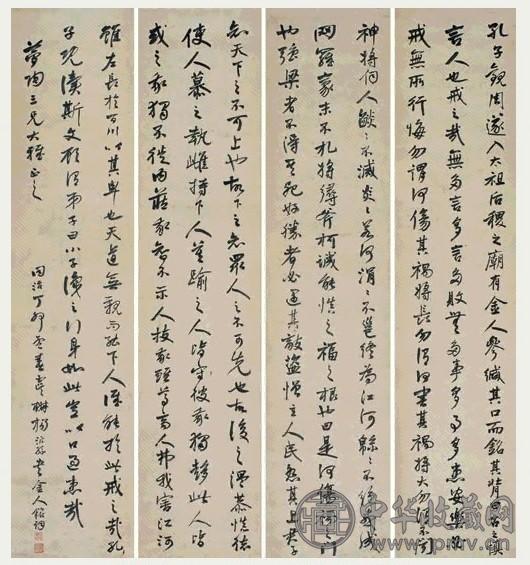 孔子觀周遂入太祖后稷之廟有金人參緘其口而銘其背曰古之慎
言人也戒之哉無多言多言多敗無多事多事多患安樂必
戒無所行悔勿謂何傷其禍將長勿謂何害其禍將大勿謂不聞
神將伺人燄〻不滅炎〻若何涓〻不壅終為江河緜〻不絕或成
網羅毫末不札將尋斧柯誠能慎之福之根也曰是何傷禍之門
也強梁者不得其死好勝者必遇其敵盜憎主人民怨其上君子
知天下之不可上也故下之知眾人之不可先也故後之溫恭慎德
使人慕之執雌持下人莫踰之人皆彼我獨此人皆
或之我獨不徙內藏我智不示人技我雖尊高人弗我害江河
雖左長於百川以其卑也天道無親而能下人深能於此戒之哉孔
子既讀斯文顧謂弟子曰小子識之行身如此豈以口過患哉
夢陶三兄大雅正之
同治丁卯沂孫書金人銘詞
中华收藏网
pmv.cn